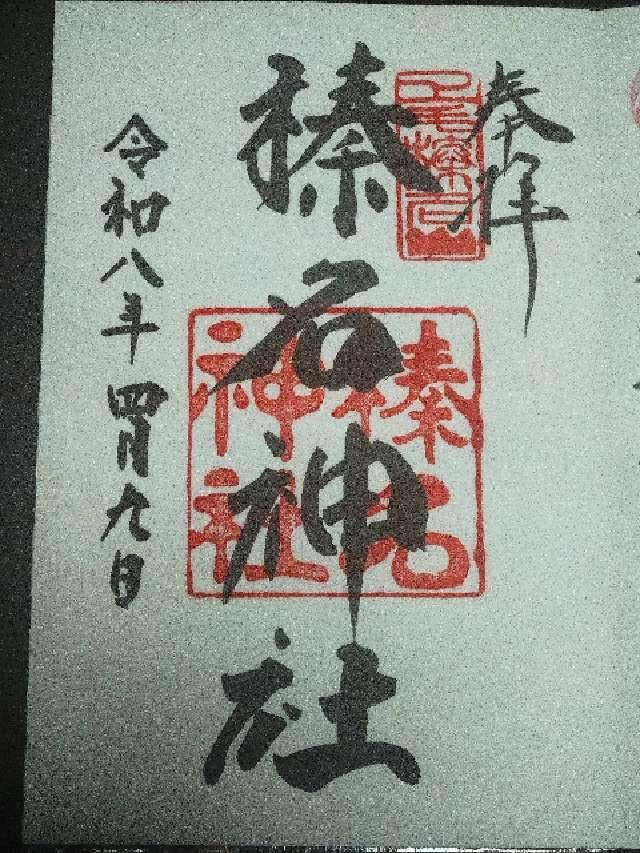 奉拝
榛名神社
榛名神社
令和八年四月九日